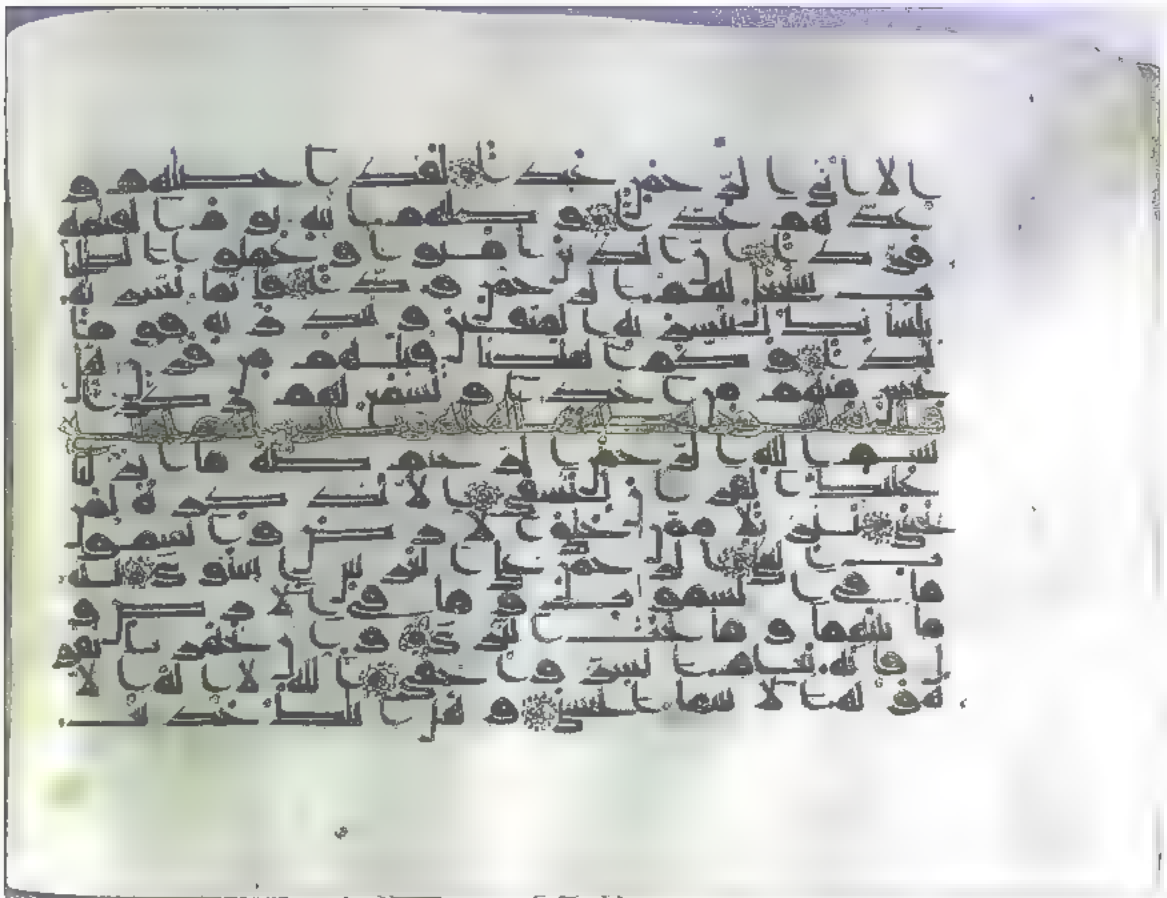 الا اتى الرحمن عبدا لقد احصيهم و
عدهم عدا و كلهم اتيه يوم القيمة
فردا ان الذين امنوا و عملوا الصلـ
حت سيجعل لهم الرحمن ودا فانما يسرنه
بلسانك لتبشر به المتقين و تنذر به قوما
لدا و كم اهلكنا قبلهم من قرن هل
تحس منهم من احد او تسمع لهم ركزا
بسم الله الرحمن الرحيم طه ما انزلنا
عليك القران لتشقى الا تذكرة لمن
يخشى تنزيلا ممن خلق الارض و السموا
ت العلى الرحمن على العرش استوى له
ما في السموت و ما في الارض و
ما بينهما و ما تحت الثرى و ان تجهر بالقو
ل فانه يعلم السر و اخفى الله لا اله الا
هو له الاسما الحسنى و هل اتيك حديث